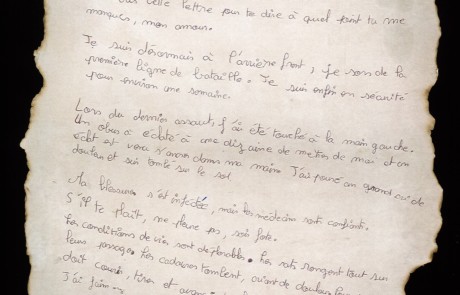 cette lettre pour te dire à quel point tu me
manques, mon amour.
Je suis désormais à l'arrière front, je sors de la
première ligne de bataille. Je suis enfin en sécurité
pour environ une semaine.
Lors du dernier assaut, j'ai été touché à la main gauche.
Un obus a éclaté à une dizaine de mètres de moi et un
éclat est venu s' dans ma main. J'ai poussé un grand cri de
douleur et suis tombé sur le sol.
Ma blessure s'est infectée, mais les médecins sont confiants.
S'il te plaît, ne pleure pas, sois forte.
Les conditions de vie sont déplorables. Les rats rongent tout sur
leur passage. Les cadavres tombent, crient de douleur.
doit courir, tirer et
J'ai